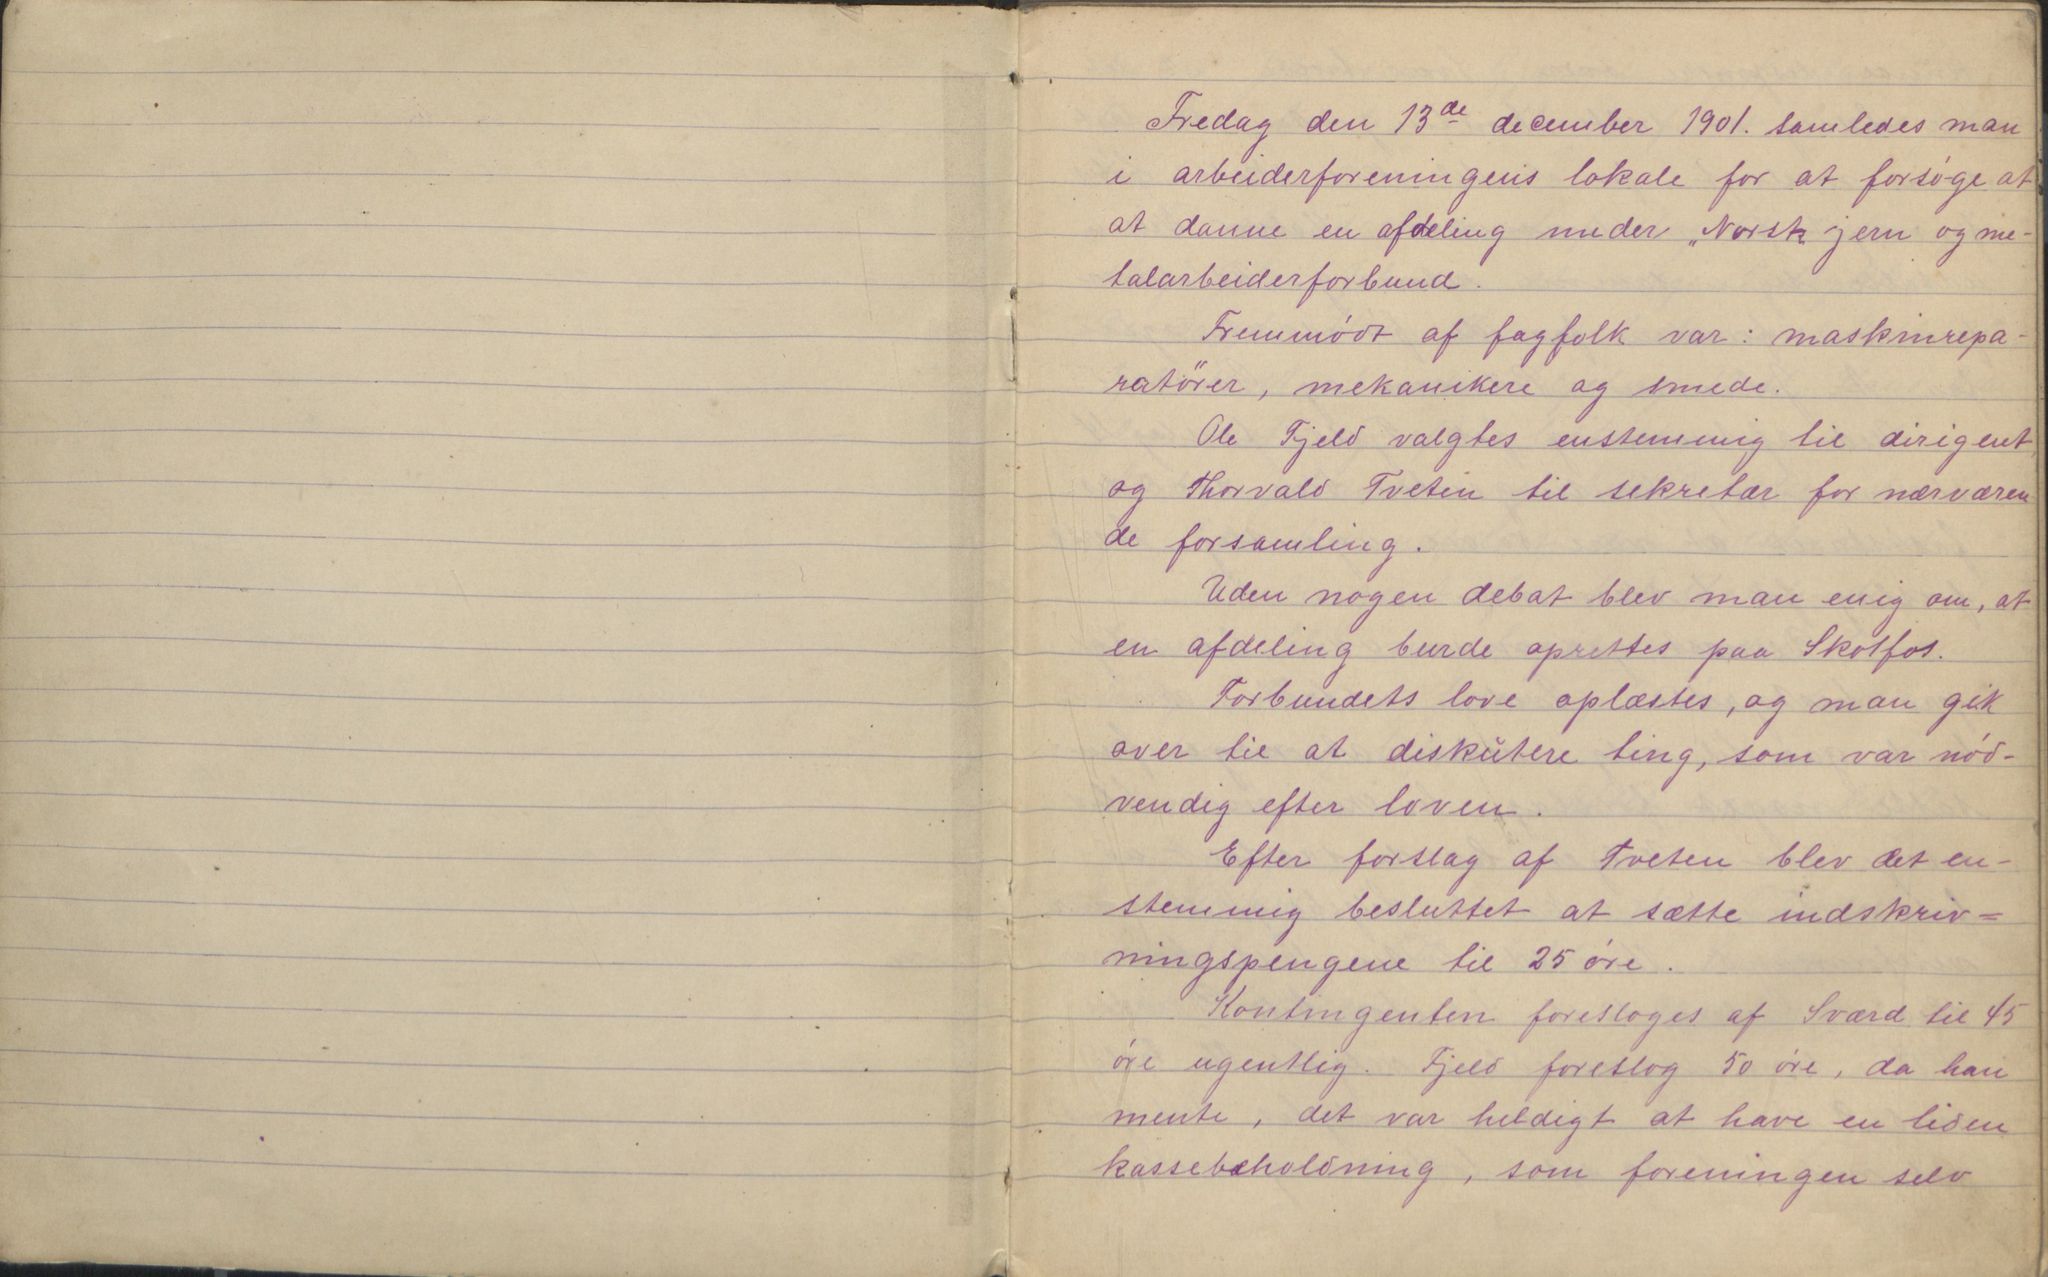 Fredag den 13de december 1901. samledes man
i arbeiderforeningens lokale for at forsøge at
at danne en afdeling under „Norsk jern og me-
talarbeiderforbund.
Fremmødt af fagfolk var: maskinrepa-
ratører, mekanikere og smede.
Ole Fjeld valgtes enstemmig til dirigent
og Thorvald Tveten til sekretær for nærværen
de forsamling.
Uden nogen debat blev man enig om, at
en afdeling burde oprettes paa Skotfos.
Forbundets love oplæstes, og man gik
over til at diskutere ting, som var nød-
vendig efter loven.
Efter forslag af Tveten blev det en-
stemmig besluttet at sætte indskriv=
ningspengene til 25 øre.
Kontingenten foresloges af Sværd til 45
øre ugentlig. Fjeld foreslog 50 øre, da han
mente, det var heldigt at have en liden
kassebeholdning, som foreningen selv